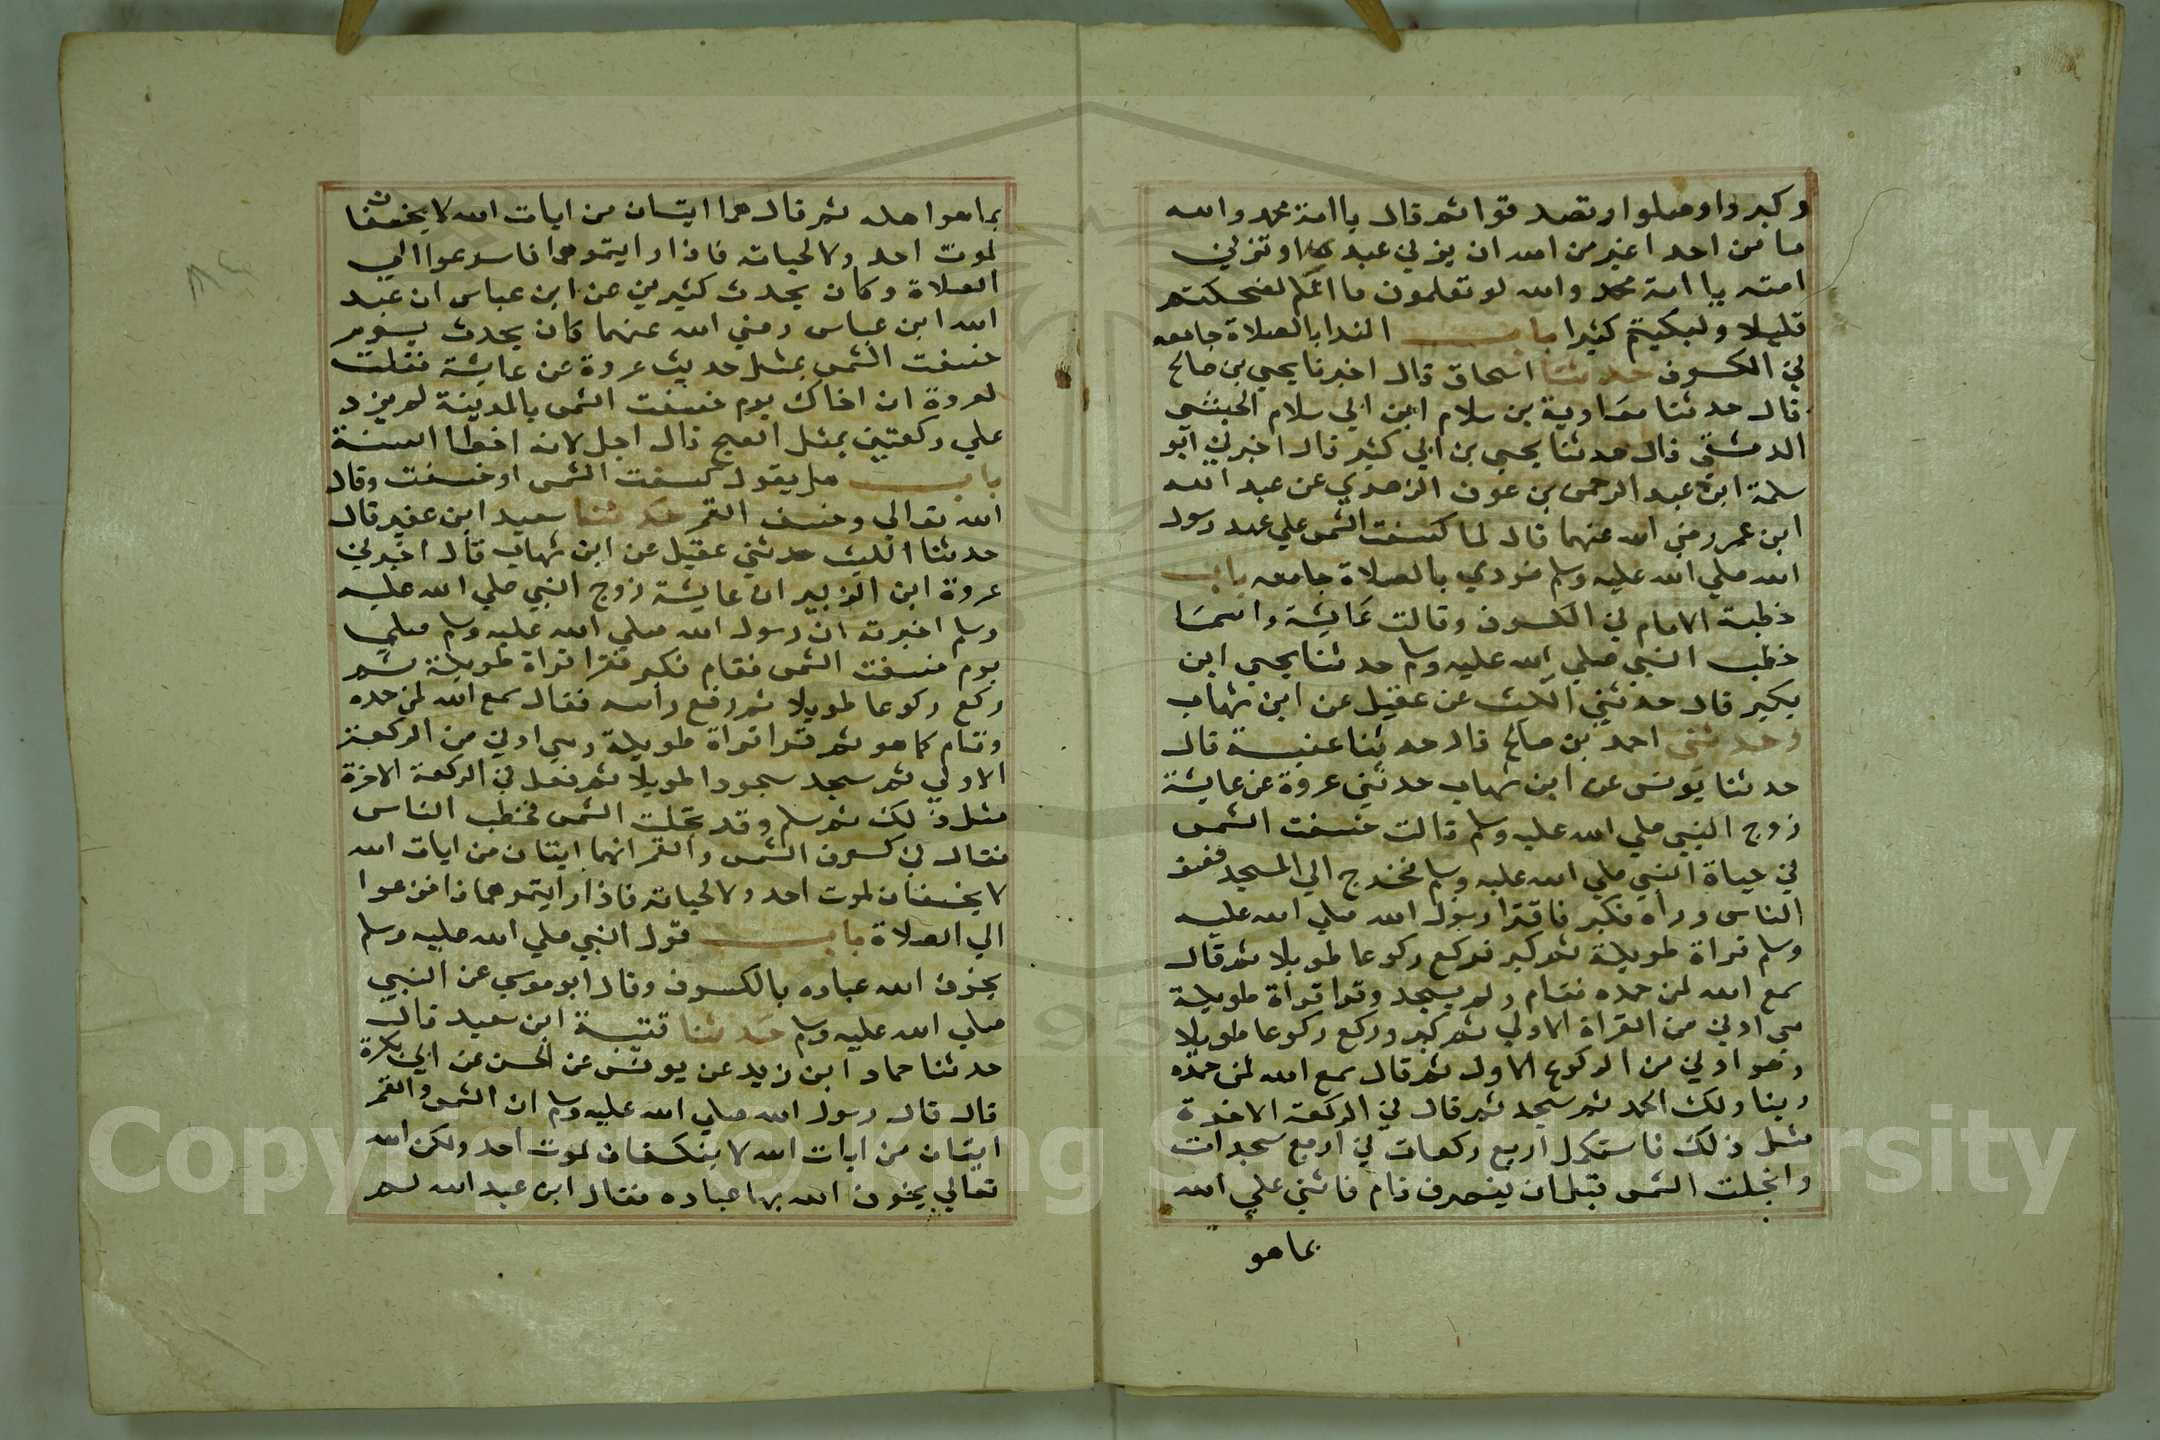 وكبروا وصلوا وتصدقوا ثم قال يا امة محمد والله
ما من احد اغير من الله ان يزني عبده او تزني
امته يا امة محمد والله لو تعلمون ما اعلم لضحكتم
قليلا ولبكيتم كثيرا باب الندا بالصلاة جامعه
في الكسوف حدثنا اسحاق قال اخبرنا يحيي بن صالح
قال حدثنا معاوية بن سلام ابن ابي سلام الحبشي
الدمشقي قال حدثنا يحيي بن ابي كثير قال اخبرني ابو
سلمة ابن عبد الرحمن بن عوف الزهري عن عبد الله
ابن عمر رضي الله عنهما قال لما كسفت الشمس علي عهد رسول
الله صلي الله عليه وسلم نودي بالصلاة جامعه باب
خطبة الامام في الكسوف وقالت عايشة واسما
خطب النبي صلي الله عليه وسلم حدثنا يحيي ابن
بكير قال حدثني الليث عن عقيل عن ابن شهاب
وحدثني احمد بن صالح قال حدثنا عنبسة قال
حدثنا يونس عن ابن شهاب حدثني عروة عن عايشة
زوج النبي صلي الله عليه وسلم قالت خسفت الشمس
في حياة النبي صلي الله عليه وسلم فخرج الي المسجد فصف
الناس وراه فكبر فاقترا رسول الله صلي الله عليه
وسلم قراة طويلة ثم كبر فركع ركوعا طويلا ثم قال
سمع الله لمن حمده فقام ولم يسجد وقرا قراة طويلة
هي ادني من القراة الاولي ثم كبر وركع ركوعا طويلا
وهو ادني من الركوع الاول ثم قال سمع الله لمن حمده
ربنا ولك الحمد ثم سجد ثم قال في الركعة الاخرة
مثل ذلك فاستكمل اربع ركعات في اربع سجدات
وانجلت الشمس قبل ان ينصرف قام فاثني علي الله
بما هو
بما هو اهله ثم قال هما ايتان من ايات الله لا يخسفان
لموت احد ولا لحياته فاذا رايتموها فاسرعوا الي
الصلاة وكان يحدث كثير بن عن ابن عباس ان عبد
الله ابن عباس رضي الله عنهما كان يحدث يوم
خسفت الشمس بمثل حديث عروة عن عايشة فقلت
لعروة ان اخاك يوم خسفت الشمس بالمدينة لم يزد
علي ركعتين بمثل الصبح قال اجل لانه اخطا السنة
باب هل يقول كسفت الشمس او خسفت وقال
الله تعالي وخسف القمر حدثنا سعيد ابن عفير قال
حدثنا الليث حدثني عقيل عن ابن شهاب قال اخبرني
عروة ابن الزبير ان عايشة زوج النبي صلي الله عليه
وسلم اخبرته ان رسول الله صلي الله عليه وسلم صلي
يوم خسفت الشمس فقام فكبر فقرا قراة طويلة ثم
ركع ركوعا طويلا ثم رفع راسه فقال سمع الله لمن حمده
وقام كما هو ثم قرا قراة طويلة وهي ادني من الركعة
الاولي ثم سجد سجودا طويلا ثم فعل في الركعة الاخرة
مثل ذلك ثم سلم وقد تجلت الشمس فخطب الناس
فقال في كسوف الشمس والقمر انهما ايتان من ايات الله
لا يخسفان لموت احد ولا لحياته فاذا رايتموهما فافزعوا
الي الصلاة باب قول النبي صلي الله عليه وسلم
يخوف الله عباده بالكسوف وقال ابو موسي عن النبي
صلي الله عليه وسلم حدثنا قتيبة ابن سعيد قال
حدثنا حماد ابن زيد عن يونس عن الحسن عن ابي بكرة
قال قال رسول الله صلي الله عليه وسلم ان الشمس والقمر
ايتان من ايات الله لا ينكسفان لموت احد ولكن الله
تعالي يخوف الله بها عباده فقال ابو عبد الله لم
Copyright © King Saud University